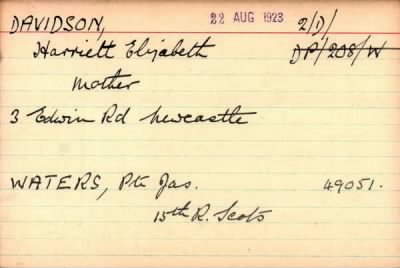 DAVIDSON, 22 AUG 1923 2/D/
Harriett Elizabeth DP/208/W
Mother
3 Edwin Rd Newcastle
WATERS, Pte Jas. 49051.
15th R. Scots